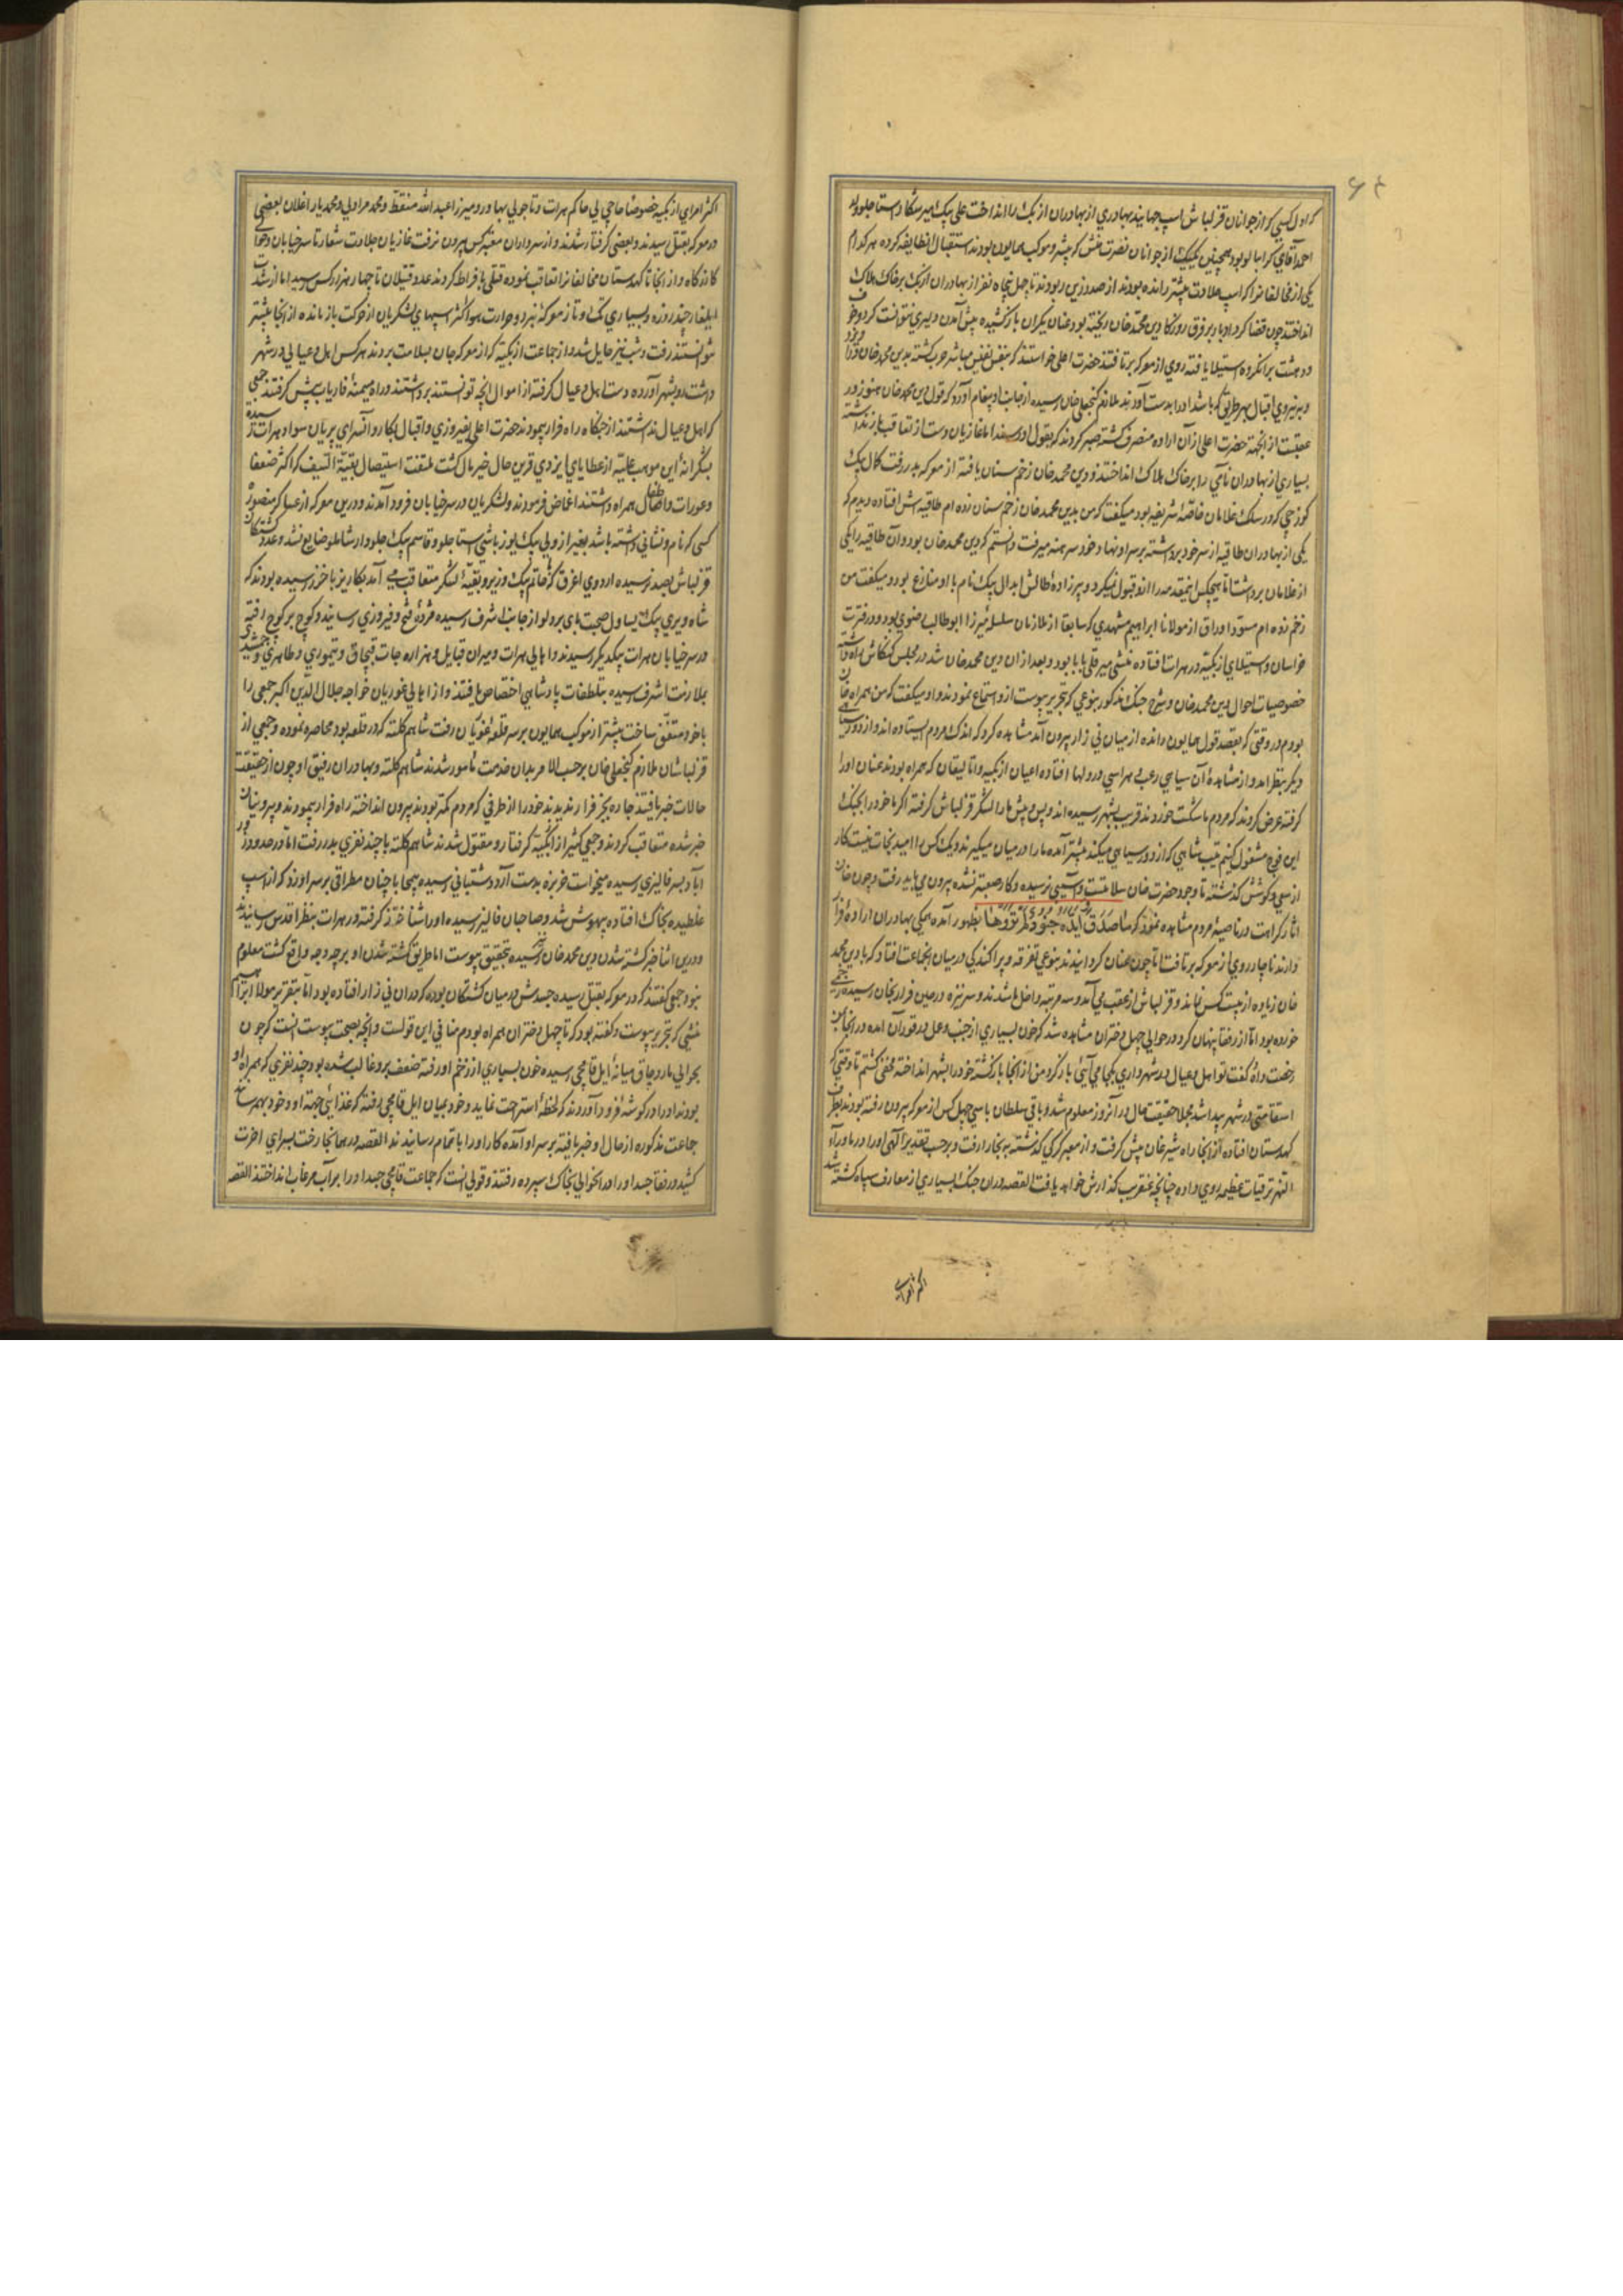 که اول کسی که از جوانان قزلباش اسپ جهانیند بهادری از بهادران ازبک را انداخت علی بیک میر شکار استاجلو ولد
احمد آقای کرامپالو بود همچنین یکیک از جوانان نصرت منش که پیشرو موکب همایون بودند استقبال انطایفه کرده هر کدام
یکی از مخالفانرا که اسپ جلادت پیشتر رانده بودند از صدر زین ربودند تا چهل پنجاه نفر از بهادران ازبک بر خاک هلاک
انداختند چون قضا کرد ادبار بر فرق روزگار دین محمد خان ریخته بود عنان یکران باز کشیده پیش آمدن دلیری نتوانست کرد و خوف
و دهشت بر انگروه استیلا یافته روی از معرکه برتافتند حضرت اعلی خواستند که بنفس نفیس مباشر حرب کشته بدین محمد خان
و بنیروی اقبال بهر طریق که باشد اورا بدست آورند ملازم گنجعلی خان رسیده از جانب او پیغام آورد که قول دین محمد خان هنوز در
عقبست از انجهة حضرت اعلی از آن اراده منصرف کشته صبر کردند که بقول او رسند اما غازیان دست از تعاقب باز نداشته
بسیاری از بهادران نامی را بر خاک هلاک انداختند و دین محمد خان زخم سنان یافته از معرکه بدر رفت کمال بیک
کورچی که در سلک غلامان خاصه شریفه بود میگفت که من بدین محمد خان زخم سنان زده ام طاقیه اش افتاده دیدم که
یکی از بهادران طاقیه از سر خود برداشته بر سر او نهاد و خود سر برهنه میرفت دانستم که دین محمد خان بود و آن طاقیه را یکی
از غلامان برداشت اما هیچکس اینمقدمه را از و قبول نمیکرد و پیرزاده طالش ابدال بیک نام با او منازع بود و میگفت من
زخم زده ام مسود اوراق از مولانا ابراهیم مشهدی که سابقا از ملازمان سلسله میرزا ابو طالب رضوی بود و در فترت
خراسان و استیلای ازبکیه در هرات افتاده منشی میر قلی بابا بود و بعد از ان دین محمد خان شد در مجلس کنکاش راه داشته
خصوصیات احوال دین محمد خان و شرح جنگ مذکور بنوعی که بتحریر پیوست از و استماع نمودند و او میگفت که من همراه خان
بودم در وقتی که بقصد قول همایون رانده از میان نی زار بیرون آمد مشاهده کرد که اندک مردم ایستاده اند و از دور سیاهی
دیگر بنظر آمد و از مشاهده آن سیاهی رعب و هراسی در دلها افتاده اعیان ازبکیه و اتالیقان که همراه بودند عنان اورا
گرفته عرض کردند که مردم ما شکست خوردند قریب بشهر رسیده اند و پس و پیش مارا لشکر قزلباش گرفته اگر ما خودرا بجنک
این فوج مشغول کنیم تیپ شاهی که از دور سیاهی میکند پیشتر آمده مارا در میان میگیرند و یک کس را امید نجات نیست کار
از سعی و کوشش گذشته تا وجود حضرت خان سلامتست و آسیبی نرسیده و کار صعبتر نشده بیرون می باید رفت و چون خان
آثار کراهت در ناصیهٔ مردم مشاهده نمود که ما صدق اَیَّدَه بِجُنُودٍ لَمْ تَرَوْهَا بظهور آمده همگی بهادران ارادهٔ فرار
دارند ناچار روی از معرکه برتافت اما چون عنان گردانیدند بنوعی تفرقه و پراکندگی در میان انجماعت افتاد که با دین محمد
خان زیاده از بیست کس نماند و قزلباش از عقب می آمد و سه مرتبه داخل ما شدند و سر نیزه در عین فرار بخان رسیده زخمی
خورده بود اما از رفقا پنهان کرد و در حوالی چهل دختران مشاهده شد که خون بسیاری از جنب و عل در قوران آمده در انجا من
رخصت داده گفت تو اهل و عیال در شهر داری بکجا می آئی باز گرد من از انجا باز گشته خودرا بشهر انداخته مخفی گشتم تا وقتی که
استقامتی در شهر پیدا شد مجملا حقیقت حال در آنروز معلوم شد و باقی سلطان با سی چهل کس از معرکه بیرون رفته بودند بطرف
کهدستان افتاده از انجا راه شبرغان پیش گرفت و از معبر کرکی گذشته به بخارا رفت و بر حسب تقدیر الهی اورا در ماوراء
النهر ترقیات عظیمه روی داده چنانچه عنقریب گذارش خواهد یافت القصه در ان جنک بسیاری از معارف سپاه کشته شد
اکثر امرای
اکثر امرای ازبکیه خصوصا حاجی بی حاکم هرات و تاجولی بهادر و میرزا عبد الله منقط و محمد مراد بی و محمد یار اغلان بعضی
در معرکه بقتل رسیدند و بعضی گرفتار شدند و از سرداران معتبر کس بیرون نرفت غازیان جلادت شعار تا سر خیابان و حوالی
کازرگاه و از انجا تا کهدستان مخالفانرا تعاقب نموده قتلی بافراط کردند عدد قتیلان تا چهار هزار کس رسید اما از شدت
ایلغار چند روزه و بسیاری تک و تاز معرکه نبرد و حرارت هوا اکثر اسپهای لشکریان از حرکت باز مانده از انجا پیشتر
نتوانستند رفت و شب نیز حایل شد و از جماعت ازبکیه که از معرکه جان بسلامت بردند هر کس اهل و عیالی در شهر
داشت رو بشهر آورده دست اهل و عیال گرفته از اموال انچه توانستند برداشتند و راه میمنه و فاریاب پیش گرفتند جمعی
که اهل و عیال نداشتند از جنگاه راه فرار پیمودند حضرت اعلی بفیروزی و اقبال بکاروانسرای پریان سواد هرات رسیده
بشکرانهٔ این موهبت علیه از عطایای ایزدی قرین حال خیر مآل گشت ملتفت استیصال بقیّة السّیف که اکثر ضعفا
و عورات و اطفال همراه داشتند اغماض فرمودند و لشکریان در سر خیابان فرود آمدند و درین معرکه از عساکر منصوره
کسی که نام و نشانی داشته باشد بغیر از ولی بیک یوزباشی استاجلو و قاسم بیک جلودار شاملو ضایع نشد و عدد کشتگان
قزلباش بصد نرسیده اردوی اغرق که حاتم بیک وزیر و بقیّهٔ لشکر متعاقب می آمد بکاریز باخرز رسیده بودند که
شاه ویردی بیک یساول صحبت بای بردلو از جانب اشرف رسیده مژده فتح و فیروزی رسانید و کوچ بر کوچ رفته
در سر خیابان هرات بیکدیگر رسیدند و اهالی هرات و میران قبایل و هزاره جات قبچاق و تیموری و طاهری و جمشیدی
بملازمت اشرف رسیده بتلطفات پادشاهی اختصاص یافتند و از اهالی غوریان خواجه جلال الدّین اکبر جمعی را
با خود متفّق ساخت پیشتر از موکب همایون بر سر قلعهٔ غوریان رفت شاهم کلته که در قلعه بود محاصره نموده و جمعی از
قزلباشان ملازم گنجعلی خان بر حسب الامر بدان خدمت مأمور شدند شاهم کلته و بهادران رفیق او چون از حقیقت
حالات خبر یافتند چاره بجز فرار ندیدند خودرا از طرفی که مردم کمتر بودند بیرون انداخته راه فرار پیمودند و بیرونیان
خبر شده متعاقب کردند و جمعی کثیر از ازبکیه گرفتار و مقتول شدند شاهم کلته با چند نفری بدر رفت امّا در حدود روز
آباد بسر فالیزی رسیده میخواست خربزه بدست آرد دشتبانی رسیده بیمحابا چنان مطراقی بر سر او زد که از اسپ
غلطیده بخاک افتاده بیهوش شد و صاحبان فالیز رسیده اورا شناختند گرفته در هرات بنظر اقدس رسانیدند
و درین اثنا خبر کشته شدن دین محمد خان رسیده بتحقیق پیوست اما طریق کشته شدن او بر چه وجه واقع گشت معلوم
نبود جمعی گفتند که در معرکه بقتل رسیده جسدش در میان کشتگان بوده که در ان نی زار افتاده بود امّا بتقریر مولانا ابراهیم
منشی که بتحریر پیوست و گفته بود که تا چهل دختران همراه بودم منافی این قولست و انچه بصحت پیوست انست که چون
بحوالی ماروچاق میانه ایل قاپچی رسیده خون بسیاری از زخم او رفته ضعف برو غالب شده بود چند نفری که همراه او
بودند اورا در گوشه فرود آوردند که لحظهٔ استراحت نماید و خود بمیان ایل قاپچی رفته که غذائی جهة او و خود بهم رسانند
جماعت مذکوره از حال او خبر یافته بر سر او آمده کار اورا باتمام رسانیدند القصه در همانجا رخت بسرای اخرت
کشید و رفقا جسد اورا در انحوالی بخاک سپرده رفتند و قولی انست که جماعت قاپچی جسد اورا بر آب مرغاب انداختند القصه